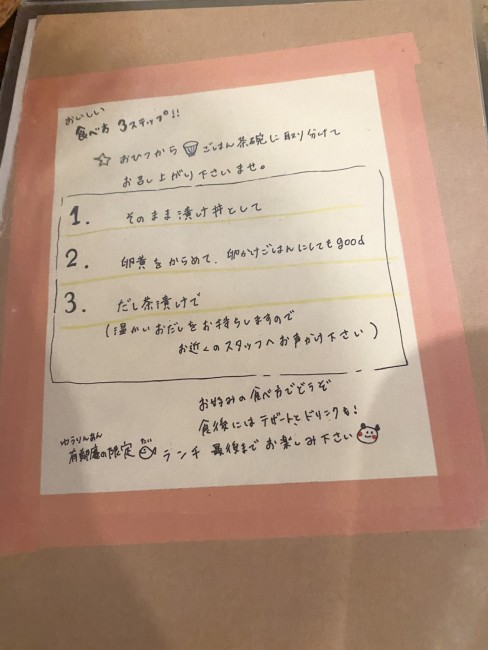 おいしい
食べ方 3ステップ!!
☆ おひつから ごはん茶碗に取り分けて
お召し上がり下さいませ。
1. そのまま漬け丼として
2. 卵黄をからめて、卵かけごはんにしてもgood
3. だし茶漬けで
(温かいおだしをお持ちしますので
お近くのスタッフへお声かけ下さい)
お好みの食べ方でどうぞ
食後にはデザートとドリンクも!
ゆうりんあん
有鄰庵の限定 たい ランチ 最後までお楽しみ下さい